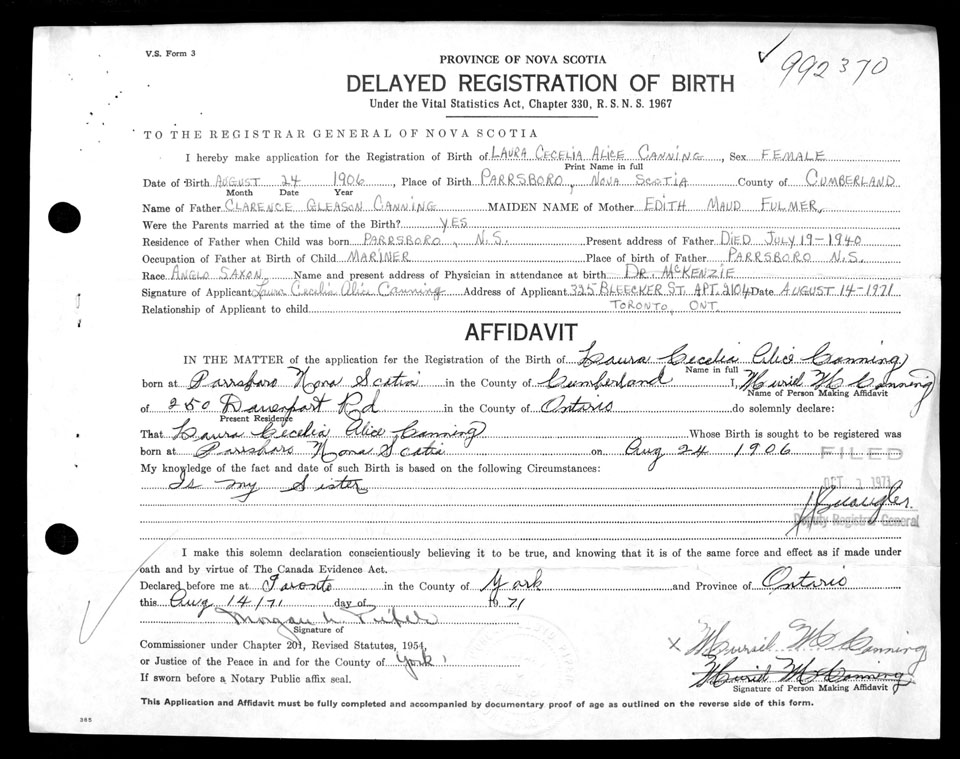 V.S. Form 3
992370
PROVINCE OF NOVA SCOTIA
DELAYED REGISTRATION OF BIRTH
Under the Vital Statistics Act, Chapter 330, R.S.N.S. 1967
TO THE REGISTRAR GENERAL OF NOVA SCOTIA
I hereby make application for the Registration of Birth of LAURA CECELIA ALICE CANNING, Sex FEMALE
Print Name in full
Date of Birth AUGUST 24 1906, Place of Birth PARRSBORO, NOVA SCOTIA County of CUMBERLAND
Month Date Year
Name of Father CLARENCE GLEASON CANNING MAIDEN NAME of Mother EDITH MAUD FULMER,
Were the Parents married at the time of the Birth? YES
Residence of Father when Child was born PARRSBORO, N.S. Present address of Father DIED JULY 19-1940
Occupation of Father at Birth of Child MARINER Place of birth of Father PARRSBORO N.S.
Race ANGLO SAXON Name and present address of Physician in attendance at birth DR. McKENZIE
Signature of Applicant Laura Cecelia Alice Canning Address of Applicant 325 BLEECKER ST. APT. 2104 Date AUGUST 14-1971
Relationship of Applicant to child TORONTO, ONT.
AFFIDAVIT
IN THE MATTER of the application for the Registration of the Birth of Laura Cecelia Alice Canning
Name in full
born at Parrsboro Nova Scotia in the County of Cumberland I, Muriel M Canning
Name of Person Making Affidavit
of 250 Davenport Rd in the County of Ontario do solemnly declare:
Present Residence
That Laura Cecelia Alice Canning Whose Birth is sought to be registered was
born at Parrsboro Nova Scotia on Aug 24 1906
FILED
My knowledge of the fact and date of such Birth is based on the following Circumstances:
OCT 1 1971
Is my Sister
Deputy Registrar General
I make this solemn declaration conscientiously believing it to be true, and knowing that it is of the same force and effect as if made under
oath and by virtue of The Canada Evidence Act.
Declared before me at Toronto in the County of York and Province of Ontario
this Aug 14/71 day of 19 71
Signature of
Commissioner under Chapter 201, Revised Statutes, 1954,
x Muriel M Canning
or Justice of the Peace in and for the County of York
Muriel M Canning
If sworn before a Notary Public affix seal.
Signature of Person Making Affidavit
This Application and Affidavit must be fully completed and accompanied by documentary proof of age as outlined on the reverse side of this form.
365